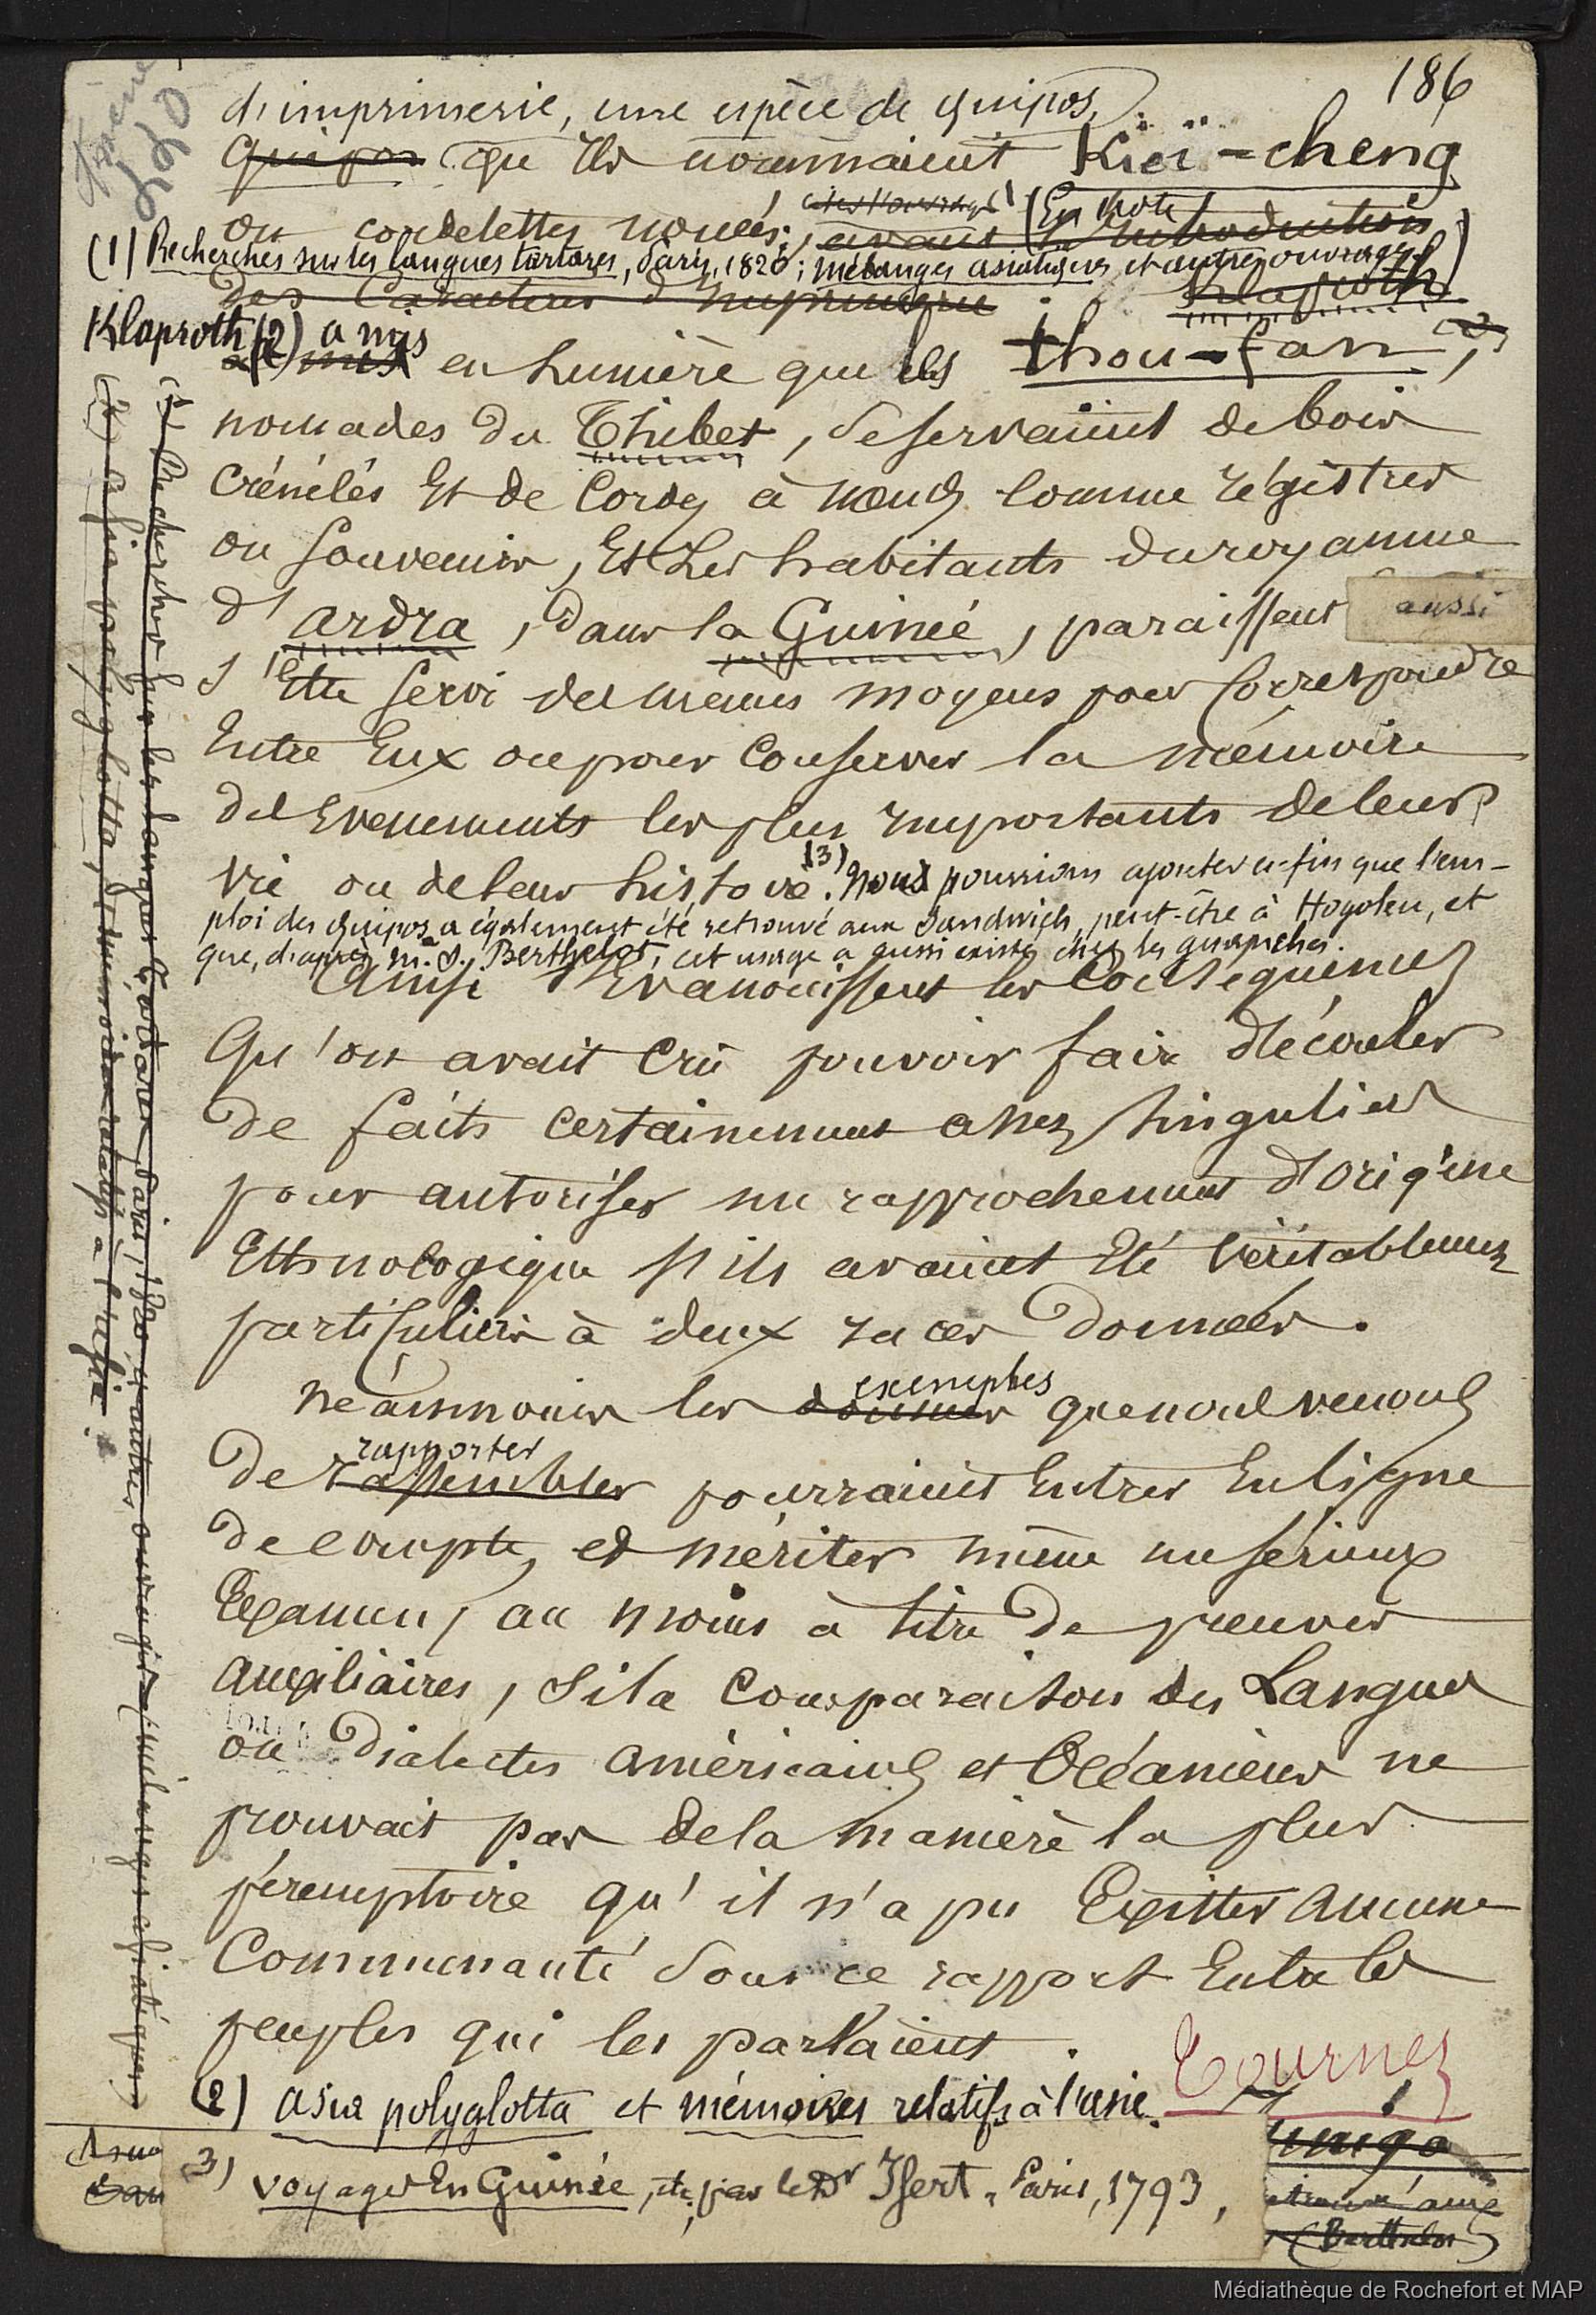 186
d'imprimerie, une espèce de quipos,
Quipos qu'ils nommaient Kieï-cheng
citer l'ouvrage (En note)
ou cordelettes nouées; avant l'Introduction
(1) Recherches sur les langues tartares, Paris, 1820; mélanges asiatiques et autres ouvrages)
des Caractères d'Imprimerie. Klaproth
Klaproth (2) a mis
a mis en lumière que les thou-fan,
nomades du Thibet, se servaient de bois
crénélés Et de Cordes à nœuds comme régistres
ou souvenirs, Et Les habitants du royaume
d'ardra, dans la Guinée, paraissent aussi
s'Etre servi des mêmes moyens pour Correspondre
Entre Eux ou pour Conserver la mémoire
des Evenements les plus importants de leur
vie ou de leur histoire.(3) Nous pourrions ajouter enfin que l'em-
ploi des quipos a également été retrouvé aux Sandwich, peut-être à Hogoleu, et
que, d'après M. S. Berthelot, cet usage a aussi existé chez les guanches.
Ainsi s'Evanouissent les Conséquences
Qu'on avait Crû pouvoir faire découler
de faits certainement assez singuliers
pour autoriser un rapprochement d'origine
Ethnologique s'ils avaient Eté véritablement
particuliers à deux races données.
exemples
néanmoins les données que nous venons
rapporter
De rassembler pourraient Entrer En ligne
de compte, et mériter même un sérieux
Examen, au moins à titre de preuves
auxiliaires, si la Comparaison des Langues
ou Dialectes américains et Océaniens ne
prouvait pas de la manière la plus
péremptoire qu'il n'a pu Exister aucune
Communauté sous ce rapport Entre les
peuples qui les parlaient.
Tournez
(2) asia polyglotta et mémoires relatifs à l'asie.
3) voyages En Guinée, etc, par le Dr Isert. Paris, 1793,
(Berthelot)
(1) Recherches sur les langues tartares, Paris, 1820, et autres ouvrages (mélanges asiatiques)
(2) asia polyglotta, et mémoires relatifs à l'asie.